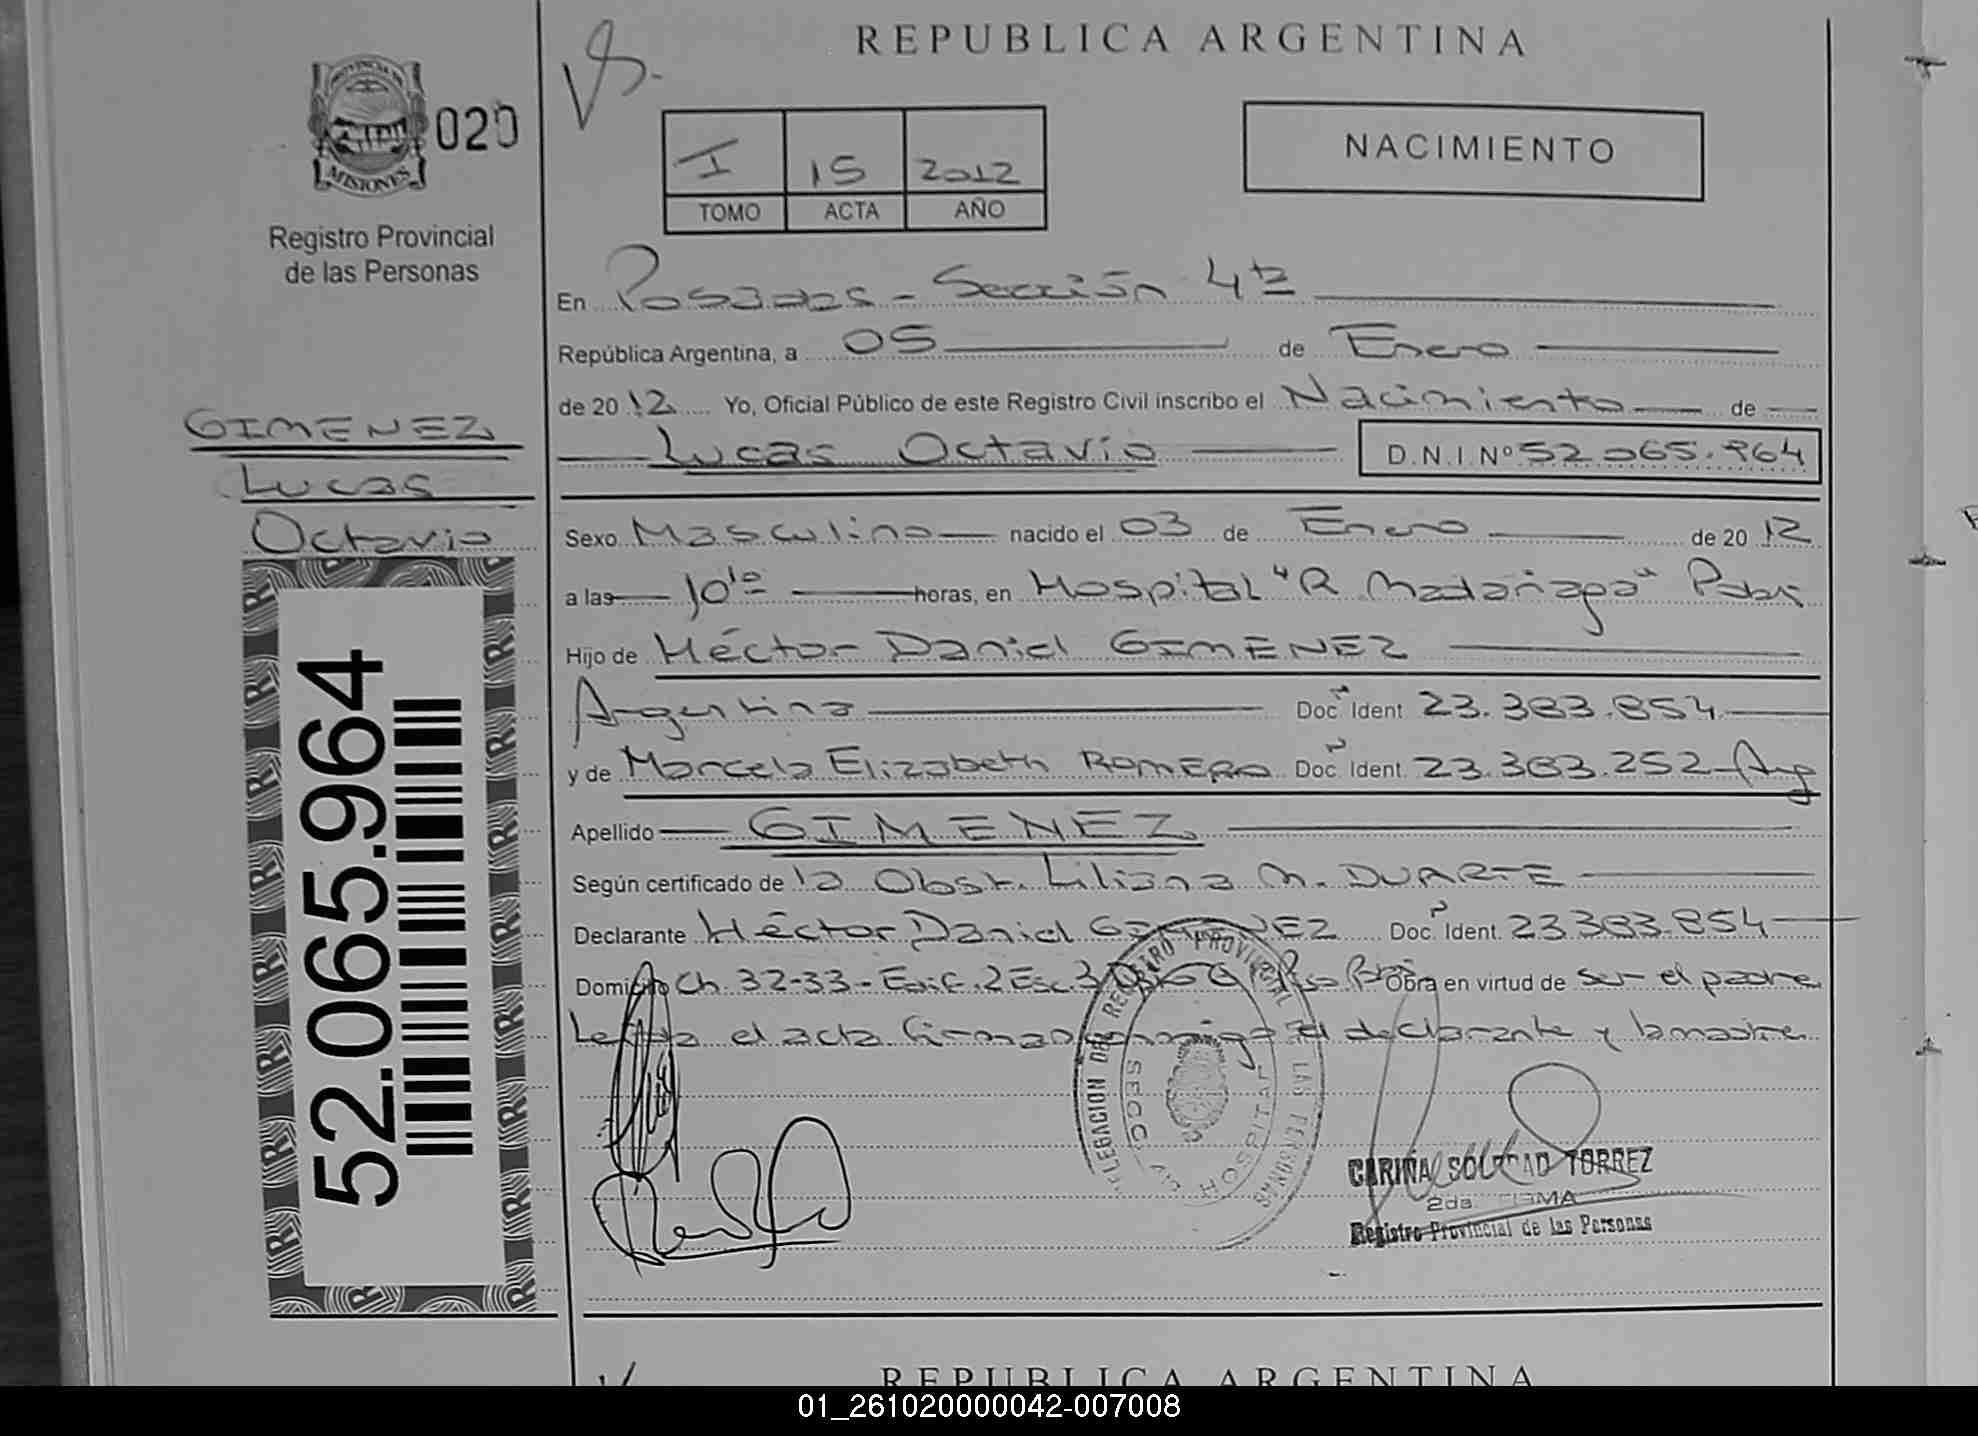 REPUBLICA ARGENTINA
PROVINCIA DE
MISIONES
020
Registro Provincial
de las Personas
I 15 2012
TOMO ACTA AÑO
NACIMIENTO
En Posadas - Sección 4ta
República Argentina, a 05 de Enero
de 2012 Yo, Oficial Público de este Registro Civil inscribo el Nacimiento de
Lucas Octavio D.N.I.Nº 52.065.964
GIMENEZ
Lucas
Octavio
52.065.964
Sexo Masculino nacido el 03 de Enero de 2012
a las 10:10 horas, en Hospital "R Madariaga"
Hijo de Héctor Daniel GIMENEZ
Argentina Doc. Ident. 23.383.854
y de Marcela Elizabeth ROMERO Doc. Ident. 23.383.252 - Arg
Apellido GIMENEZ
Según certificado de la Obst. Liliana M. DUARTE
Declarante Héctor Daniel GIMENEZ Doc. Ident. 23.383.854
Domicilio Ch. 32-33 - Edif. 2 Esc. 3 Obra en virtud de ser el padre
Leída el acta firman conmigo el declarante y la madre
DELEGACION DEL REGISTRO PROVINCIAL DE LAS PERSONAS
HOSPITAL
CARINA SOLEDAD TORREZ
2da. FIRMA
Registro Provincial de las Personas
REPUBLICA ARGENTINA
01_261020000042-007008